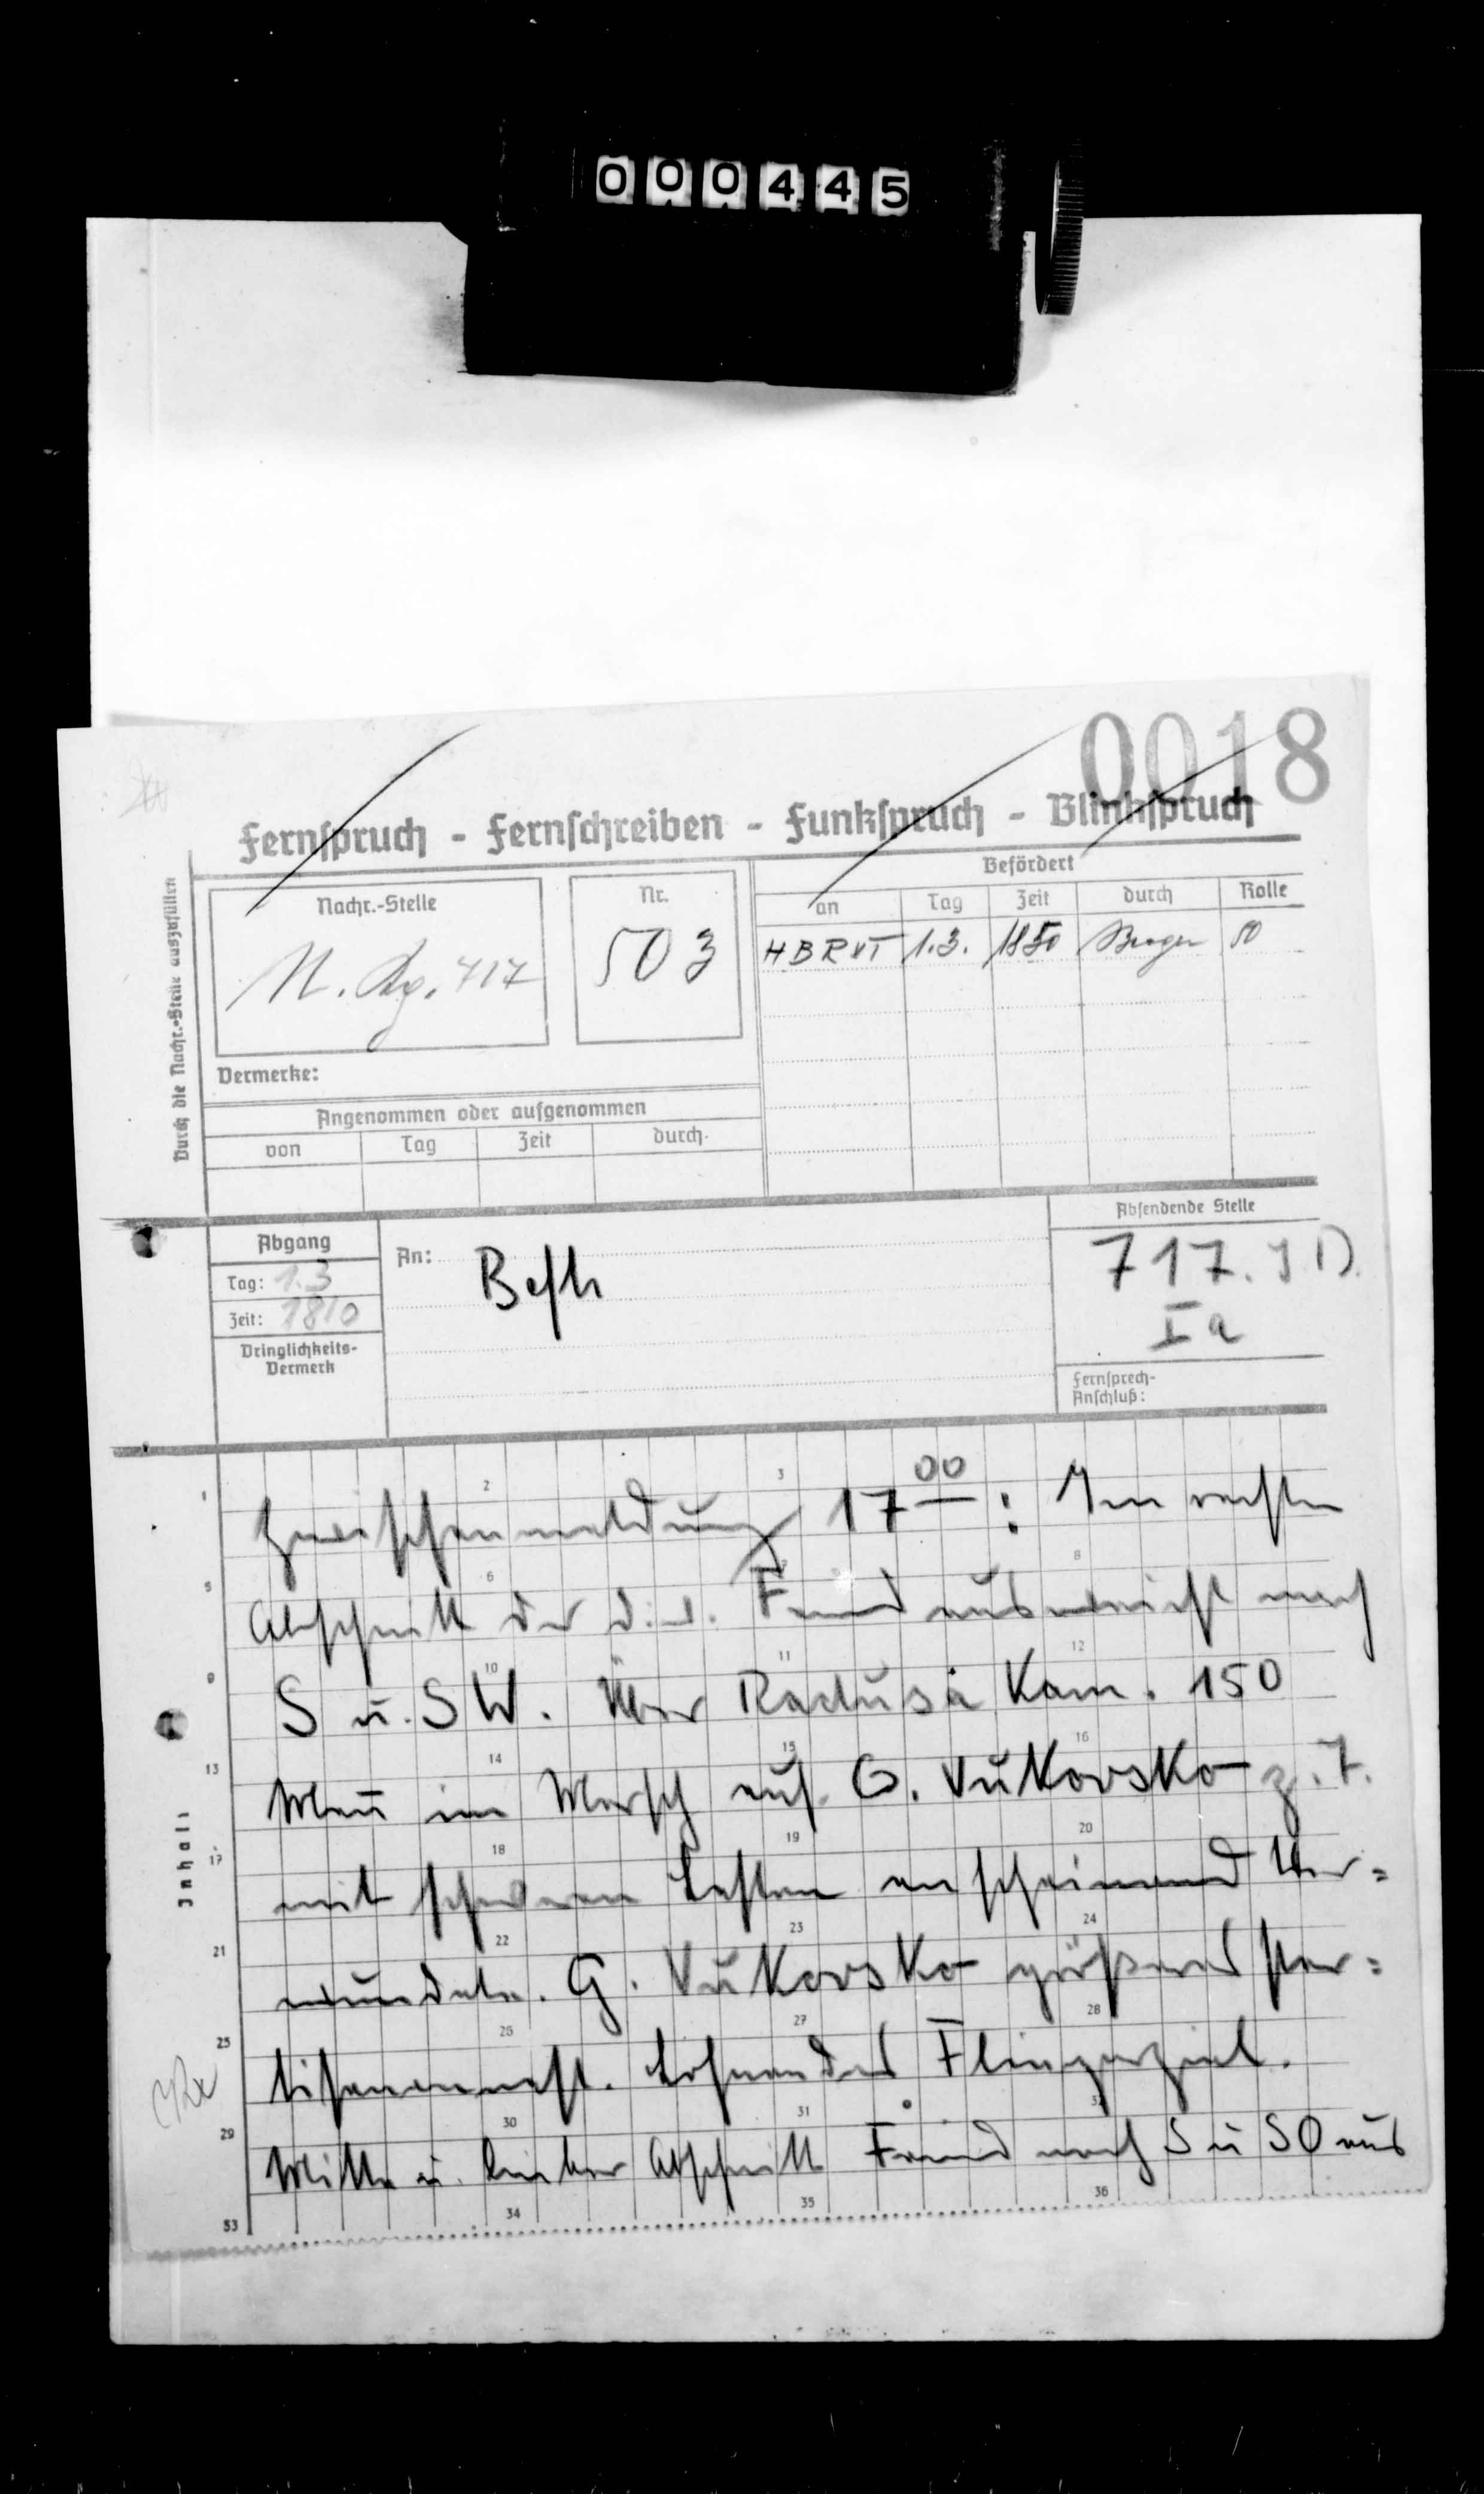 000445
0018
Fernspruch - Fernschreiben - Funkspruch - Blinkspruch
Durch die Nachr.-Stelle auszufüllen
Nachr.-Stelle
N. 717
Nr.
503
Befördert
an Tag Zeit durch Rolle
HBRXT 1.3. 1850 50
Vermerke:
Angenommen oder aufgenommen
von Tag Zeit durch
Abgang
Tag: 1.3
Zeit: 1810
Dringlichkeits-
Vermerk
An: Befh
Absendende Stelle
717. J D.
Ia
Fernsprech-
Anschluß:
Inhalt
Zwischenmeldung 17 00 : Im rechten
Abschnitt der Div. Feind ausweicht nach
S u. SW. Über Radusa Kam. 150
Mann im Marsch auf G. Vukovsko z. T.
mit schweren Lasten anscheinend Ver=
wundete. G. Vukovsko größeres Par=
tisanennest. Lohnendes Fliegerziel.
Mitte u. linker Abschnitt Feind nach S u SO aus
1 2 3
5 6 7 8
9 10 11 12
13 14 15 16
17 18 19 20
21 22 23 24
25 26 27 28
29 30 31 32
33 34 35 36